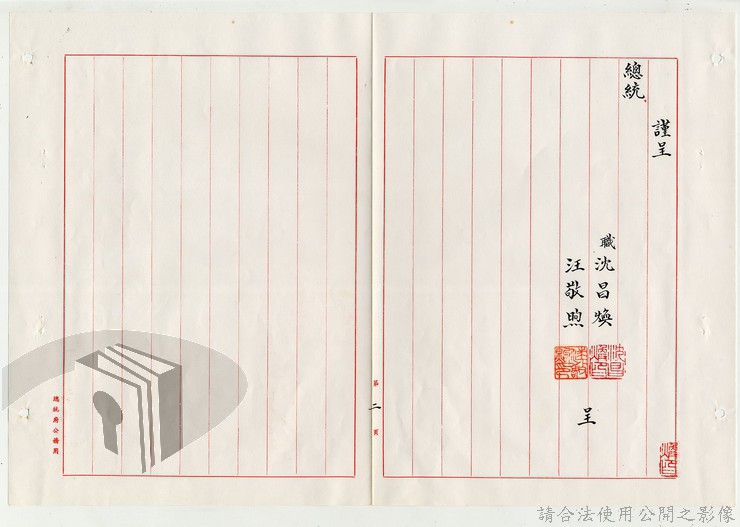 謹呈
總統
職 沈昌煥
汪敬煦
呈
第二頁
總統府公務用
請合法使用公開之影像